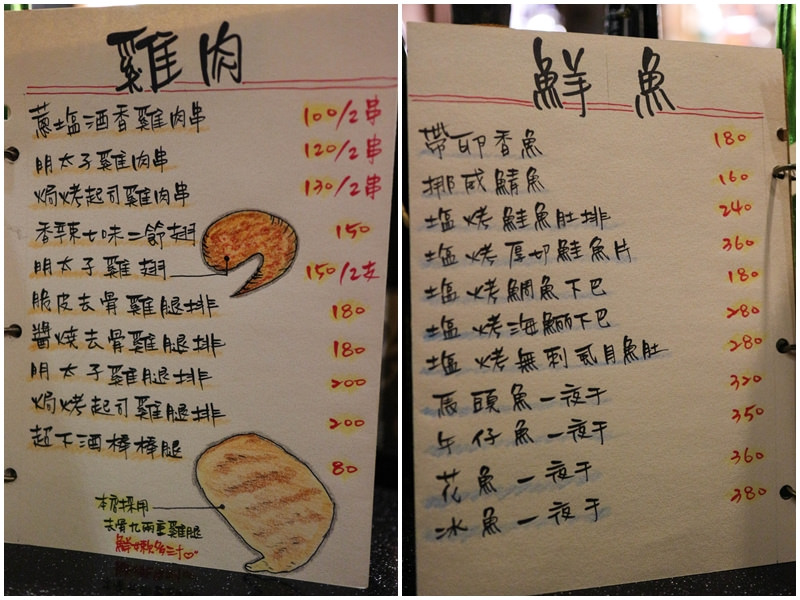 雞肉
蔥塩酒香雞肉串 100/2串
明太子雞肉串 120/2串
焗烤起司雞肉串 130/2串
香辣七味二節翅 150
明太子雞翅 150/2支
脆皮去骨雞腿排 180
醬燒去骨雞腿排 180
明太子雞腿排 200
焗烤起司雞腿排 200
超下酒棒棒腿 80
本店採用
去骨九兩重雞腿
鮮嫩多汁
鮮魚
帶卵香魚 180
挪威鯖魚 160
塩烤鮭魚肚排 240
塩烤厚切鮭魚片 360
塩烤鯛魚下巴 180
塩烤海鰤下巴 280
塩烤無刺虱目魚肚 280
馬頭魚一夜干 320
午仔魚一夜干 350
花魚一夜干 360
冰魚一夜干 380